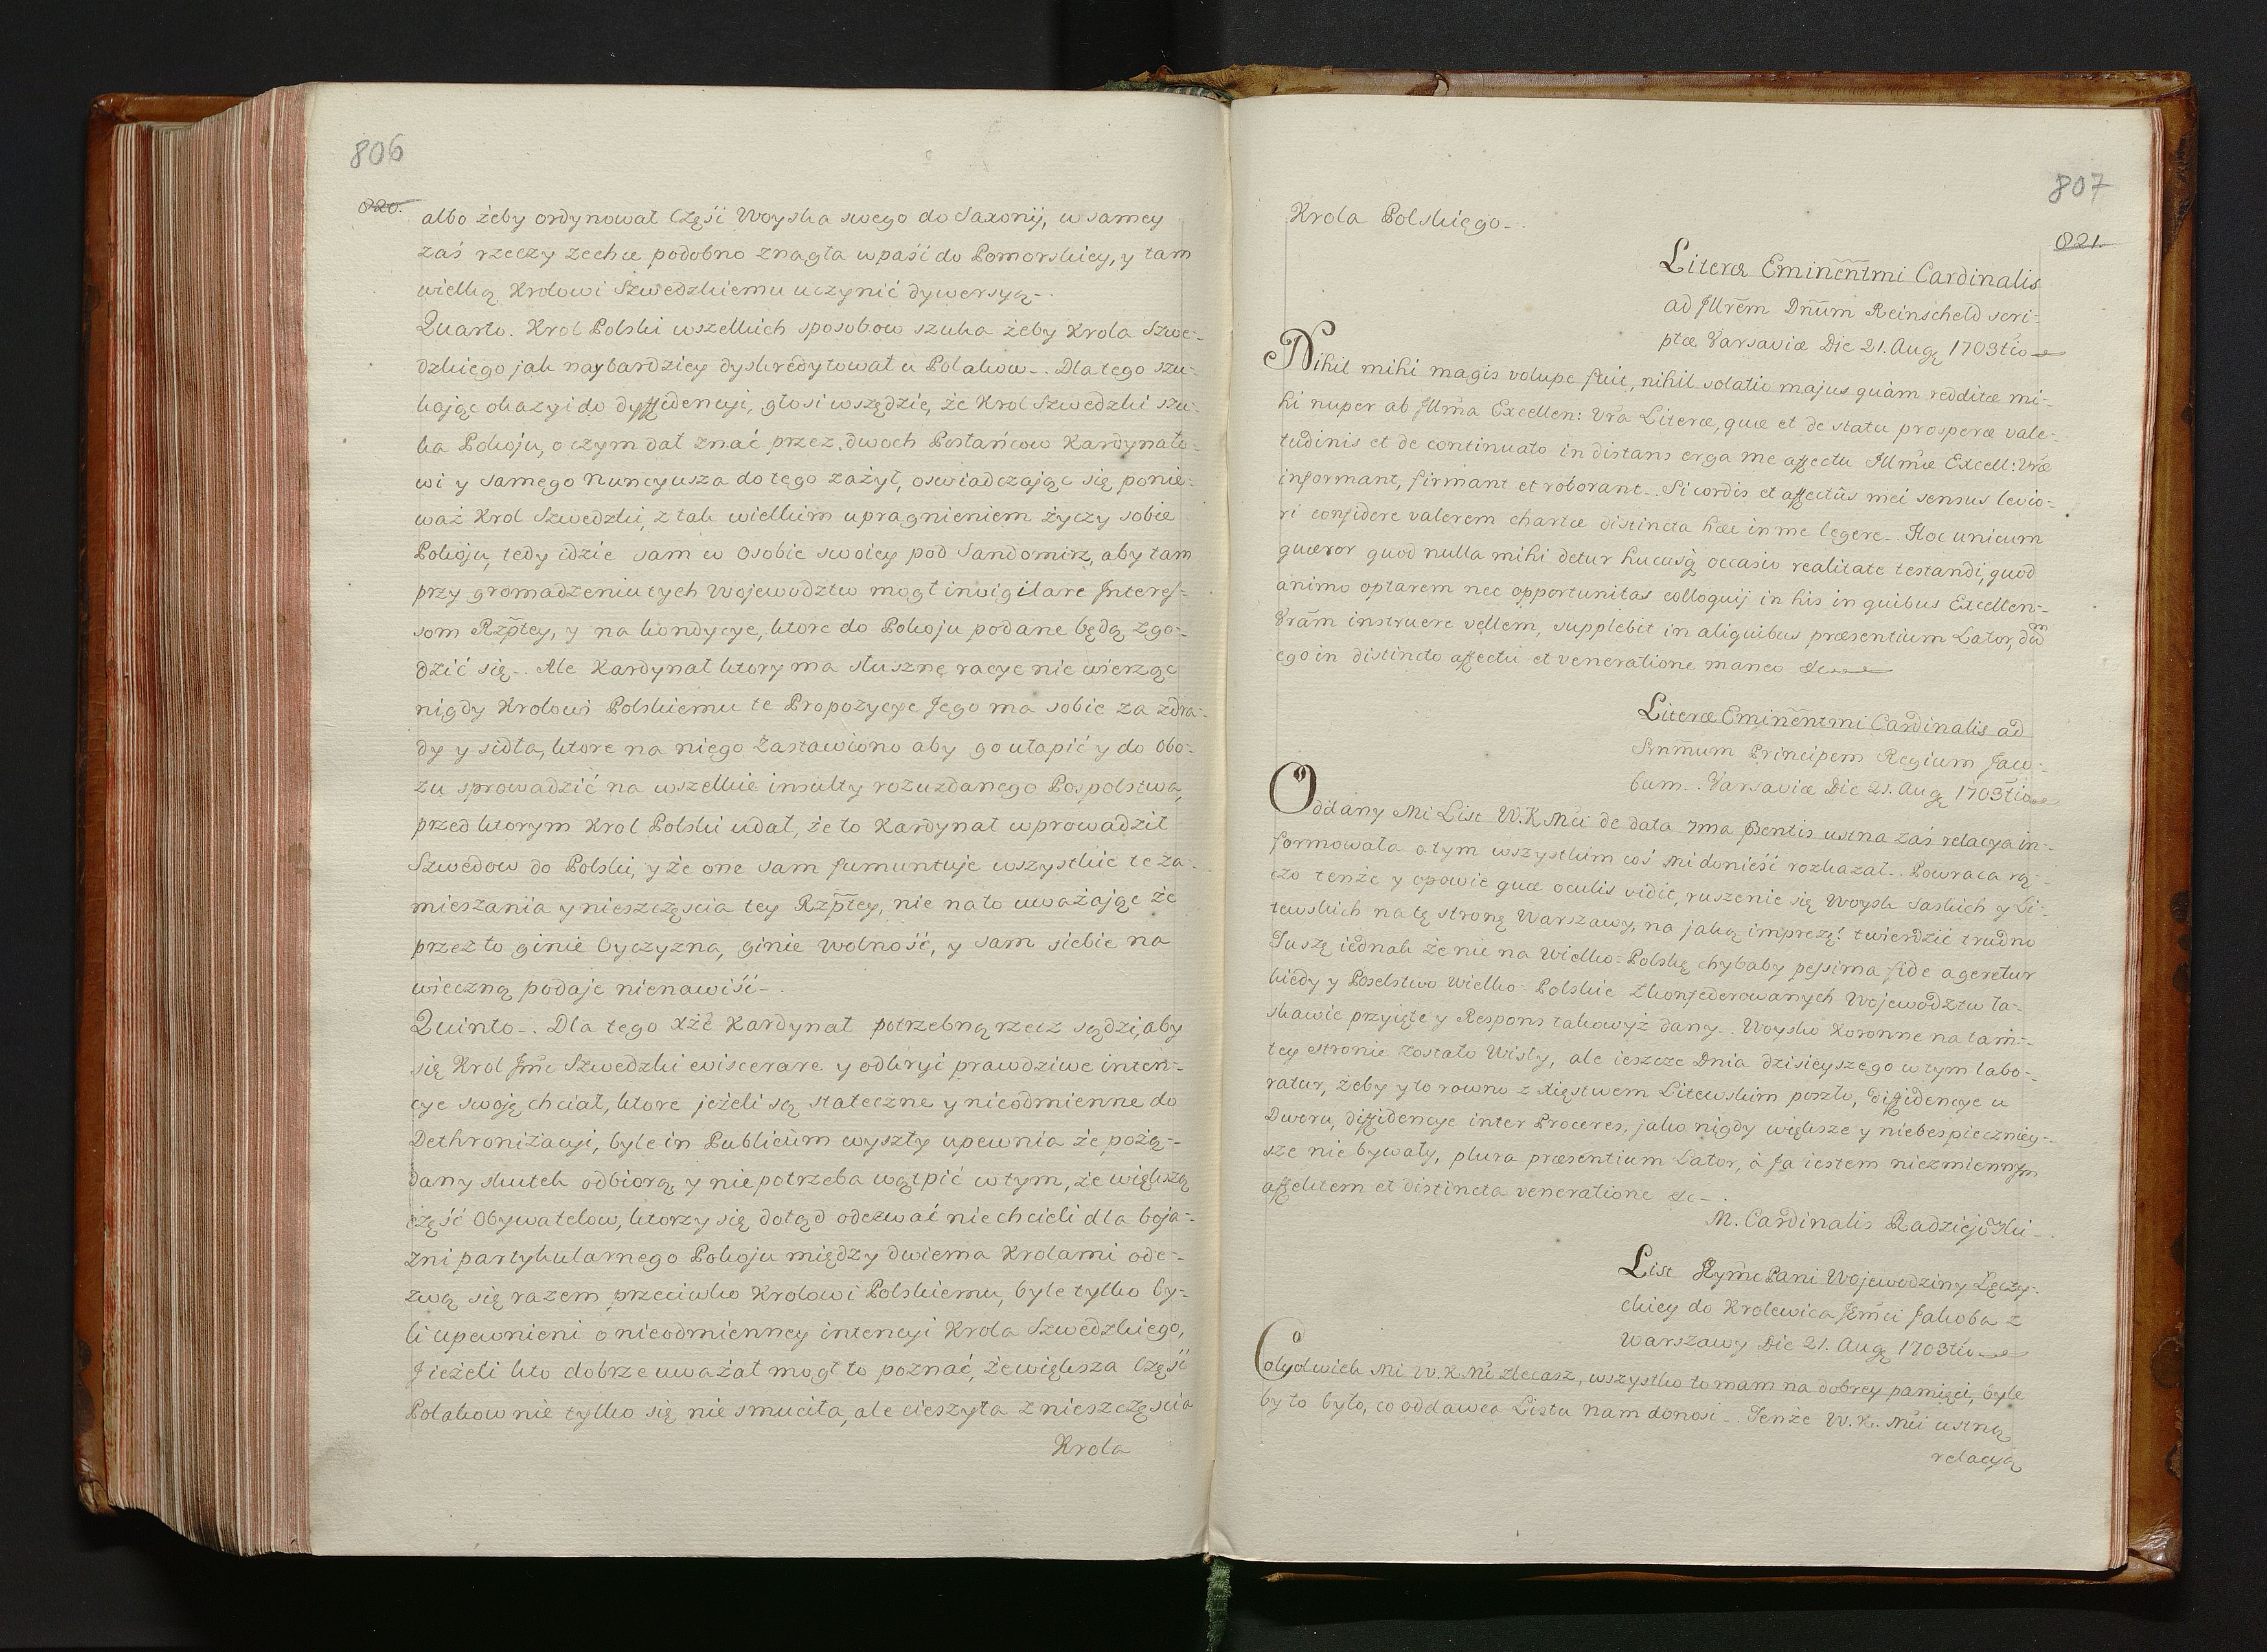 806
820.
albo żeby ordynował Część Woyska swego do Saxonij, w samey
zaś rzeczy zechce podobno znagła wpaść do Pomorskiey, y tam
wielką Krolowi Szwedzkiemu uczynić dywersyą.
Quarto. Krol Polski wszelkich sposobow szuka żeby Krola Szwe-
dzkiego jak naybardziey dyskredytował u Polakow. Dla tego szu-
kając okazyi do dyffidencyi, głosi wszędzie, że Krol Szwedzki szu-
ka Pokoju, o czym dał znać przez dwoch Posłańcow Kardynało-
wi y samego Nuncyusza do tego zażył, oswiadczając się ponie-
waż Krol Szwedzki, z tak wielkim upragnieniem życzy sobie
Pokoju, tedy idzie sam w Osobie swoiey pod Sandomirz, aby tam
przy gromadzeniu tych Wojewodztw mogł invigilare Interes-
som Rzptey, y na kondycye, ktore do Pokoju podane będą zgo-
dzić się. Ale Kardynał ktory ma słusznę racye nie wierząc
nigdy Krolowi Polskiemu te Propozycye Jego ma sobie za zdra-
dy y sidła, ktore na niego zastawiono aby go ułapić y do Obo-
zu sprowadzić na wszelkie insulty rozuzdanego Pospolstwa,
przed ktorym Krol Polski udał, że to Kardynał wprowadził
Szwedow do Polski, y że one sam fumuntuje wszystkie te za-
mieszania y nieszczęscia tey Rzptey, nie na to uważając że
przez to ginie Oyczyzna, ginie wolność, y sam siebie na
wieczną podaje nienawiść.
Quinto. Dla tego Xże Kardynał potrzebną rzecz sądzi, aby
się Krol Jmc Szwedzki eviscerare y odkryć prawdziwe inten-
cye swoję chciał, ktore jeżeli są stateczne y nieodmienne do
Dethronizacyi, byle in Publicum wyszły upewnia że pożą-
dany skutek odbiorą, y nie potrzeba wątpić w tym, że większą
część Obywatelow, ktorzy się dotąd odezwać nie chcieli dla boja-
zni partykularnego Pokoju między dwiema Krolami ode-
zwą się razem przeciwko Krolowi Polskiemu, byle tylko by-
li upewnieni o nieodmienney intencyi Krola Szwedzkiego,
Jieżeli kto dobrze uważał mogł to poznać, że większa Część
Polakow nie tylko się nie smuciła, ale cieszyła z nieszczęscia
Krola
807
821.
Krola Polskięgo.
Literæ Eminentmi Cardinalis
ad Illrem Dnum Reinscheld scri-
ptæ Varsaviæ Die 21. Aug 1703tio
Nihil mihi magis volupe fuit, nihil solatio majus quàm redditæ mi-
hi nuper ab Illma Excellen: Vra Literæ, quæ et de statu prosperæ vale-
tudinis et de continuato in distans erga me affectu Illmæ Excell: Vræ
informant, firmant et roborant. Si cordis et affectûs mei sensus levio-
ri considere valerem chartæ distincta hæc in me legere. Hoc unicum
quæror quod nulla mihi detur hucusq occasio realitate testandi, quod
animo optarem nec opportunitas colloquij in his in quibus Excellen-
Vram instruere vellem, supplebit in aliquibus præsentium Lator, dum
ego in distincto affectu et veneratione maneo &c
Literæ Eminentmi Cardinalis ad
Srnmum Principem Regium Jaco-
bum. Varsaviæ Die 21. Aug 1703tio
Oddany Mi List W.K.Mci de data 7ma Psentis ustna zaś relacya in-
formowała o tym wszystkim coś Mi donieść rozkazał. Powraca rą-
czo tenże y opowie quæ oculis vidit, ruszenie się Woysk Saskich y Li-
tewskich na tę stronę Warszawy, na jaką imprezę! twierdzić trudno
Tuszę iednak że nie na Wielko-Polskę chybaby pessima fide ageretur
kiedy y Poselstwo Wielko-Polskie zkonfederowanych Wojewodztw ła-
skawie przyięte y Respons takowyż dany. Woysko Koronne na tam-
tey stronie zostało Wisły, ale ieszcze Dnia dzisieyszego w tym labo-
ratur, żeby y to rowno z Xięstwem Litewskim poszło, diffidencye u
Dworu, diffidencye inter Proceres, jako nigdy większe y niebespieczniey-
sze nie bywały, plura præsentium Lator, à Ja iestem niezmiennym
affektem et distincta veneratione &c.
M. Cardinalis Radziejoski
List Jeymc Pani Wojewodziny Łęczy-
ckiey do Krolewica Jemci Jakoba z
Warszawy Die 21. Aug 1703tio
Cokolwiek Mi W.K.Mc zlecasz, wszystko to mam na dobrey pamięci, byle
by to było, co oddawca Listu nam donosi. Tenże W.K.Mci ustną
relacyą